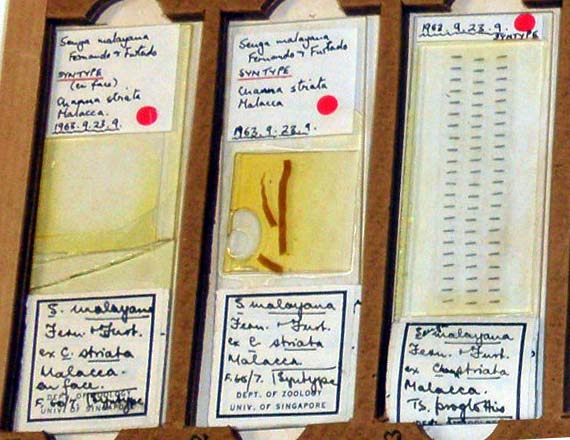 Senga malayana
Fernando & Furtado
SYNTYPE
(en face)
Channa striata
Malacca.
1963.9.23.9.
S. malayana
Fern. & Furt.
ex C. striata
Malacca.
en face.
F. 60/7. Syntype
DEPT. OF ZOOLOGY
UNIV. OF SINGAPORE
Senga malayana
Fernando & Furtado
SYNTYPE
Channa striata
Malacca
1963.9.23.9.
S malayana
Fern. & Furt.
ex C. striata
Malacca.
F. 60/7. Syntype
DEPT. OF ZOOLOGY
UNIV. OF SINGAPORE
1963.9.23.9.
SYNTYPE
malayana
Fern. & Furt.
ex striata
Malacca.
TS. proglottis